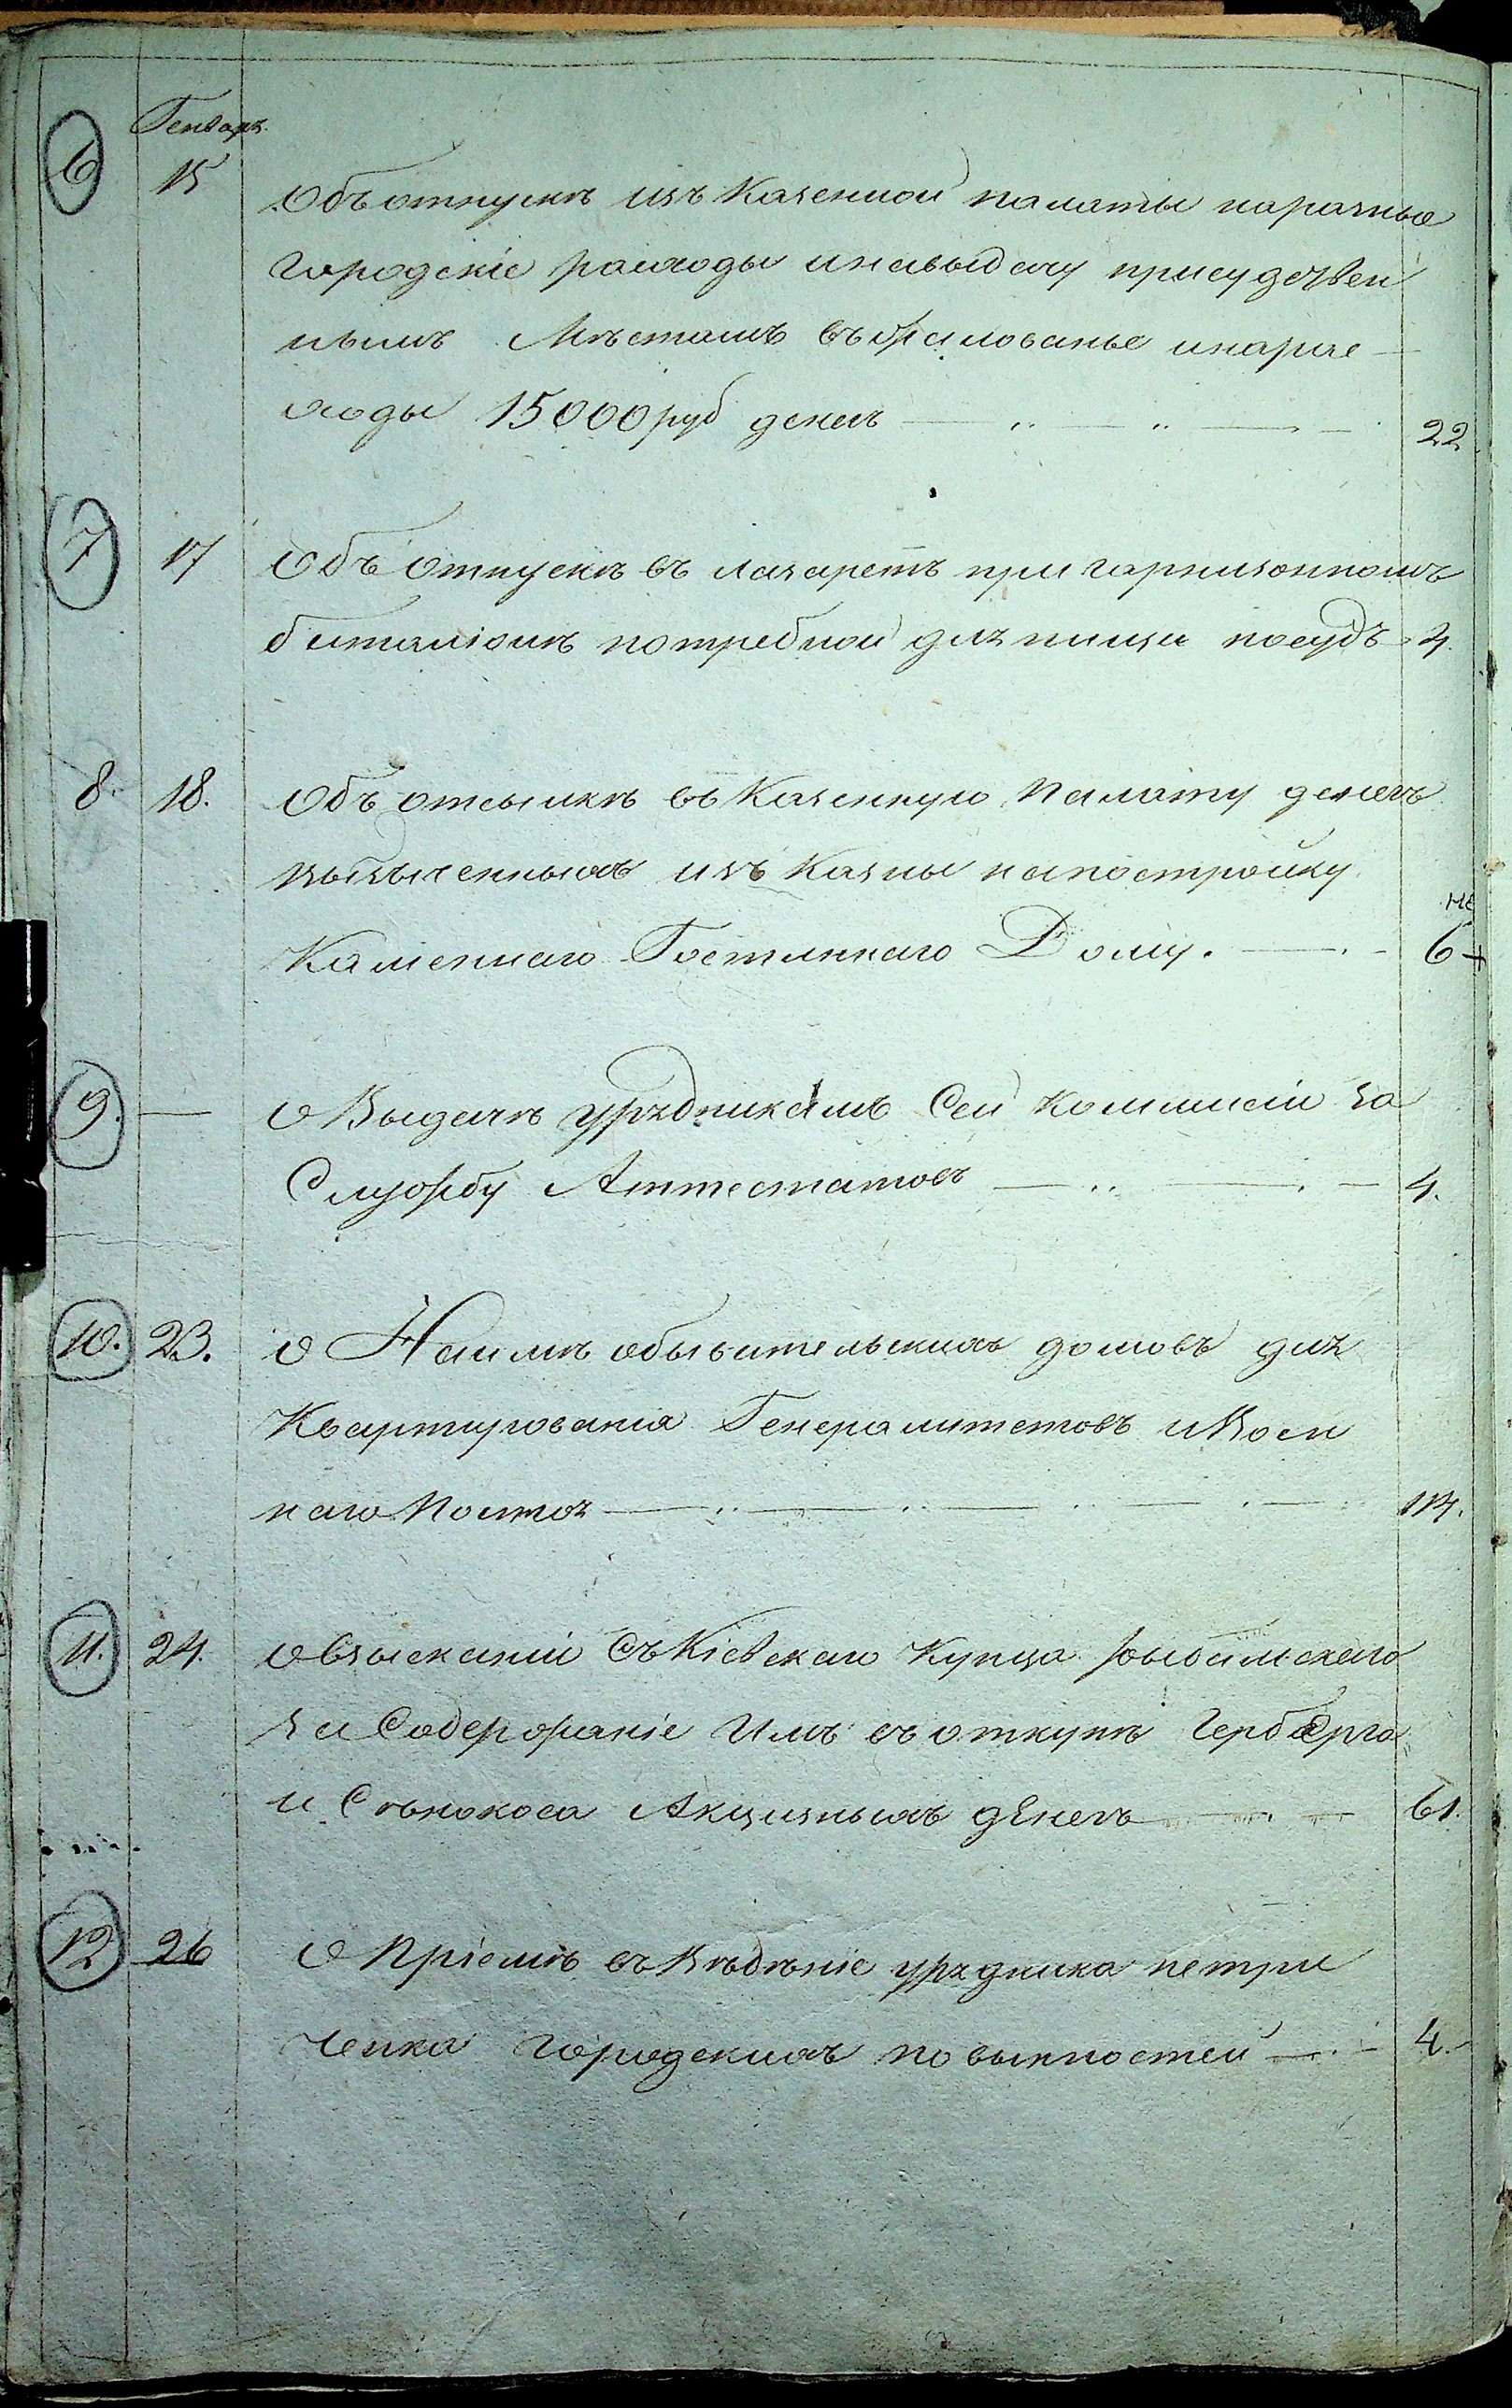 Генварь.
6 15 Объ отпускѣ изъ Казенной палаты наразные
городскіе расходы инавыдачу присудствен
нымъ Мѣстамъ въ жалованье инарас
ходы 15000 руб денегъ 22
7 17 Объ отпускѣ въ лазаретъ при гарнизонномъ
баталіонѣ потребной для пищи посудъ 4.
8. 18. Объ отсылкѣ въ Казенную Палату денегъ
изъ Казны напостройку
не
Каменнаго Гостиннаго Дому. 6+
9. — О Выдачѣ урядникамъ Сей Коммисіи за
Службу Аттестатовъ 4.
10. 23. О Наймѣ обывательскихъ домовъ для
Квартированія Генералитетовъ и Воен
наго Постоя 114.
11. 24. О взысканіи Съ Кіевскаго Купца Рыбальскаго
за Содержаніе Имъ въ откупѣ
и Сѣнокоса Акцизныхъ дЕнегъ 61.
12 26 О Пріемѣ въ Вѣдѣніе урядника петри
ченка городскихъ повинностей 4.